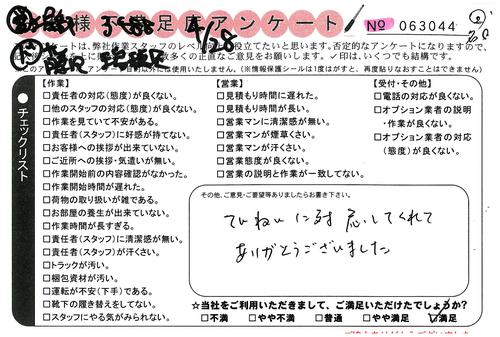 様 不満足度アンケート
4/28
No 063044
ートは、弊社作業スタッフのレベル向上に役立てたいと思います。否定的なアンケートになりますので、
数多くの正直なご意見をお願いします。✓印は、いくつでも結構です。
このアンケートは 目的以外に使用いたしません。(※情報保護シールは1度はがすと、再度貼りなおすことはできません)
チェックリスト
【作業】
□責任者の対応(態度)が良くない。
□他のスタッフの対応(態度)が良くない。
□作業を見ていて不安がある。
□責任者(スタッフ)に好感が持てない。
□お客様への挨拶が出来ていない。
□ご近所への挨拶・気遣いが無い。
□作業開始前の内容確認がなかった。
□作業開始時間が遅れた。
□荷物の取り扱いが雑である。
□お部屋の養生が出来ていない。
□作業時間が長すぎる。
□責任者(スタッフ)に清潔感が無い。
□責任者(スタッフ)が汗くさい。
□トラックが汚い。
□梱包資材が汚い。
□運転が不安(下手)である。
□靴下の履き替えをしてない。
□スタッフにやる気がみられない。
【営業】
□見積もり時間に遅れた。
□見積もり時間が長い。
□営業マンに清潔感が無い。
□営業マンが煙草くさい。
□営業マンが汗くさい。
□営業態度が良くない。
□営業の説明と作業が一致してない。
【受付・その他】
□電話の対応が良くない。
□オプション業者の説明
・作業が良くない。
□オプション業者の対応
(態度)が良くない。
その他、ご意見・ご要望等ありましたらお書き下さい。
ていねいに対応してくれて
ありがとうございました
☆当社をご利用いただきまして、ご満足いただけたでしょうか?
□不満 □やや不満 □普通 □やや満足 ☑満足